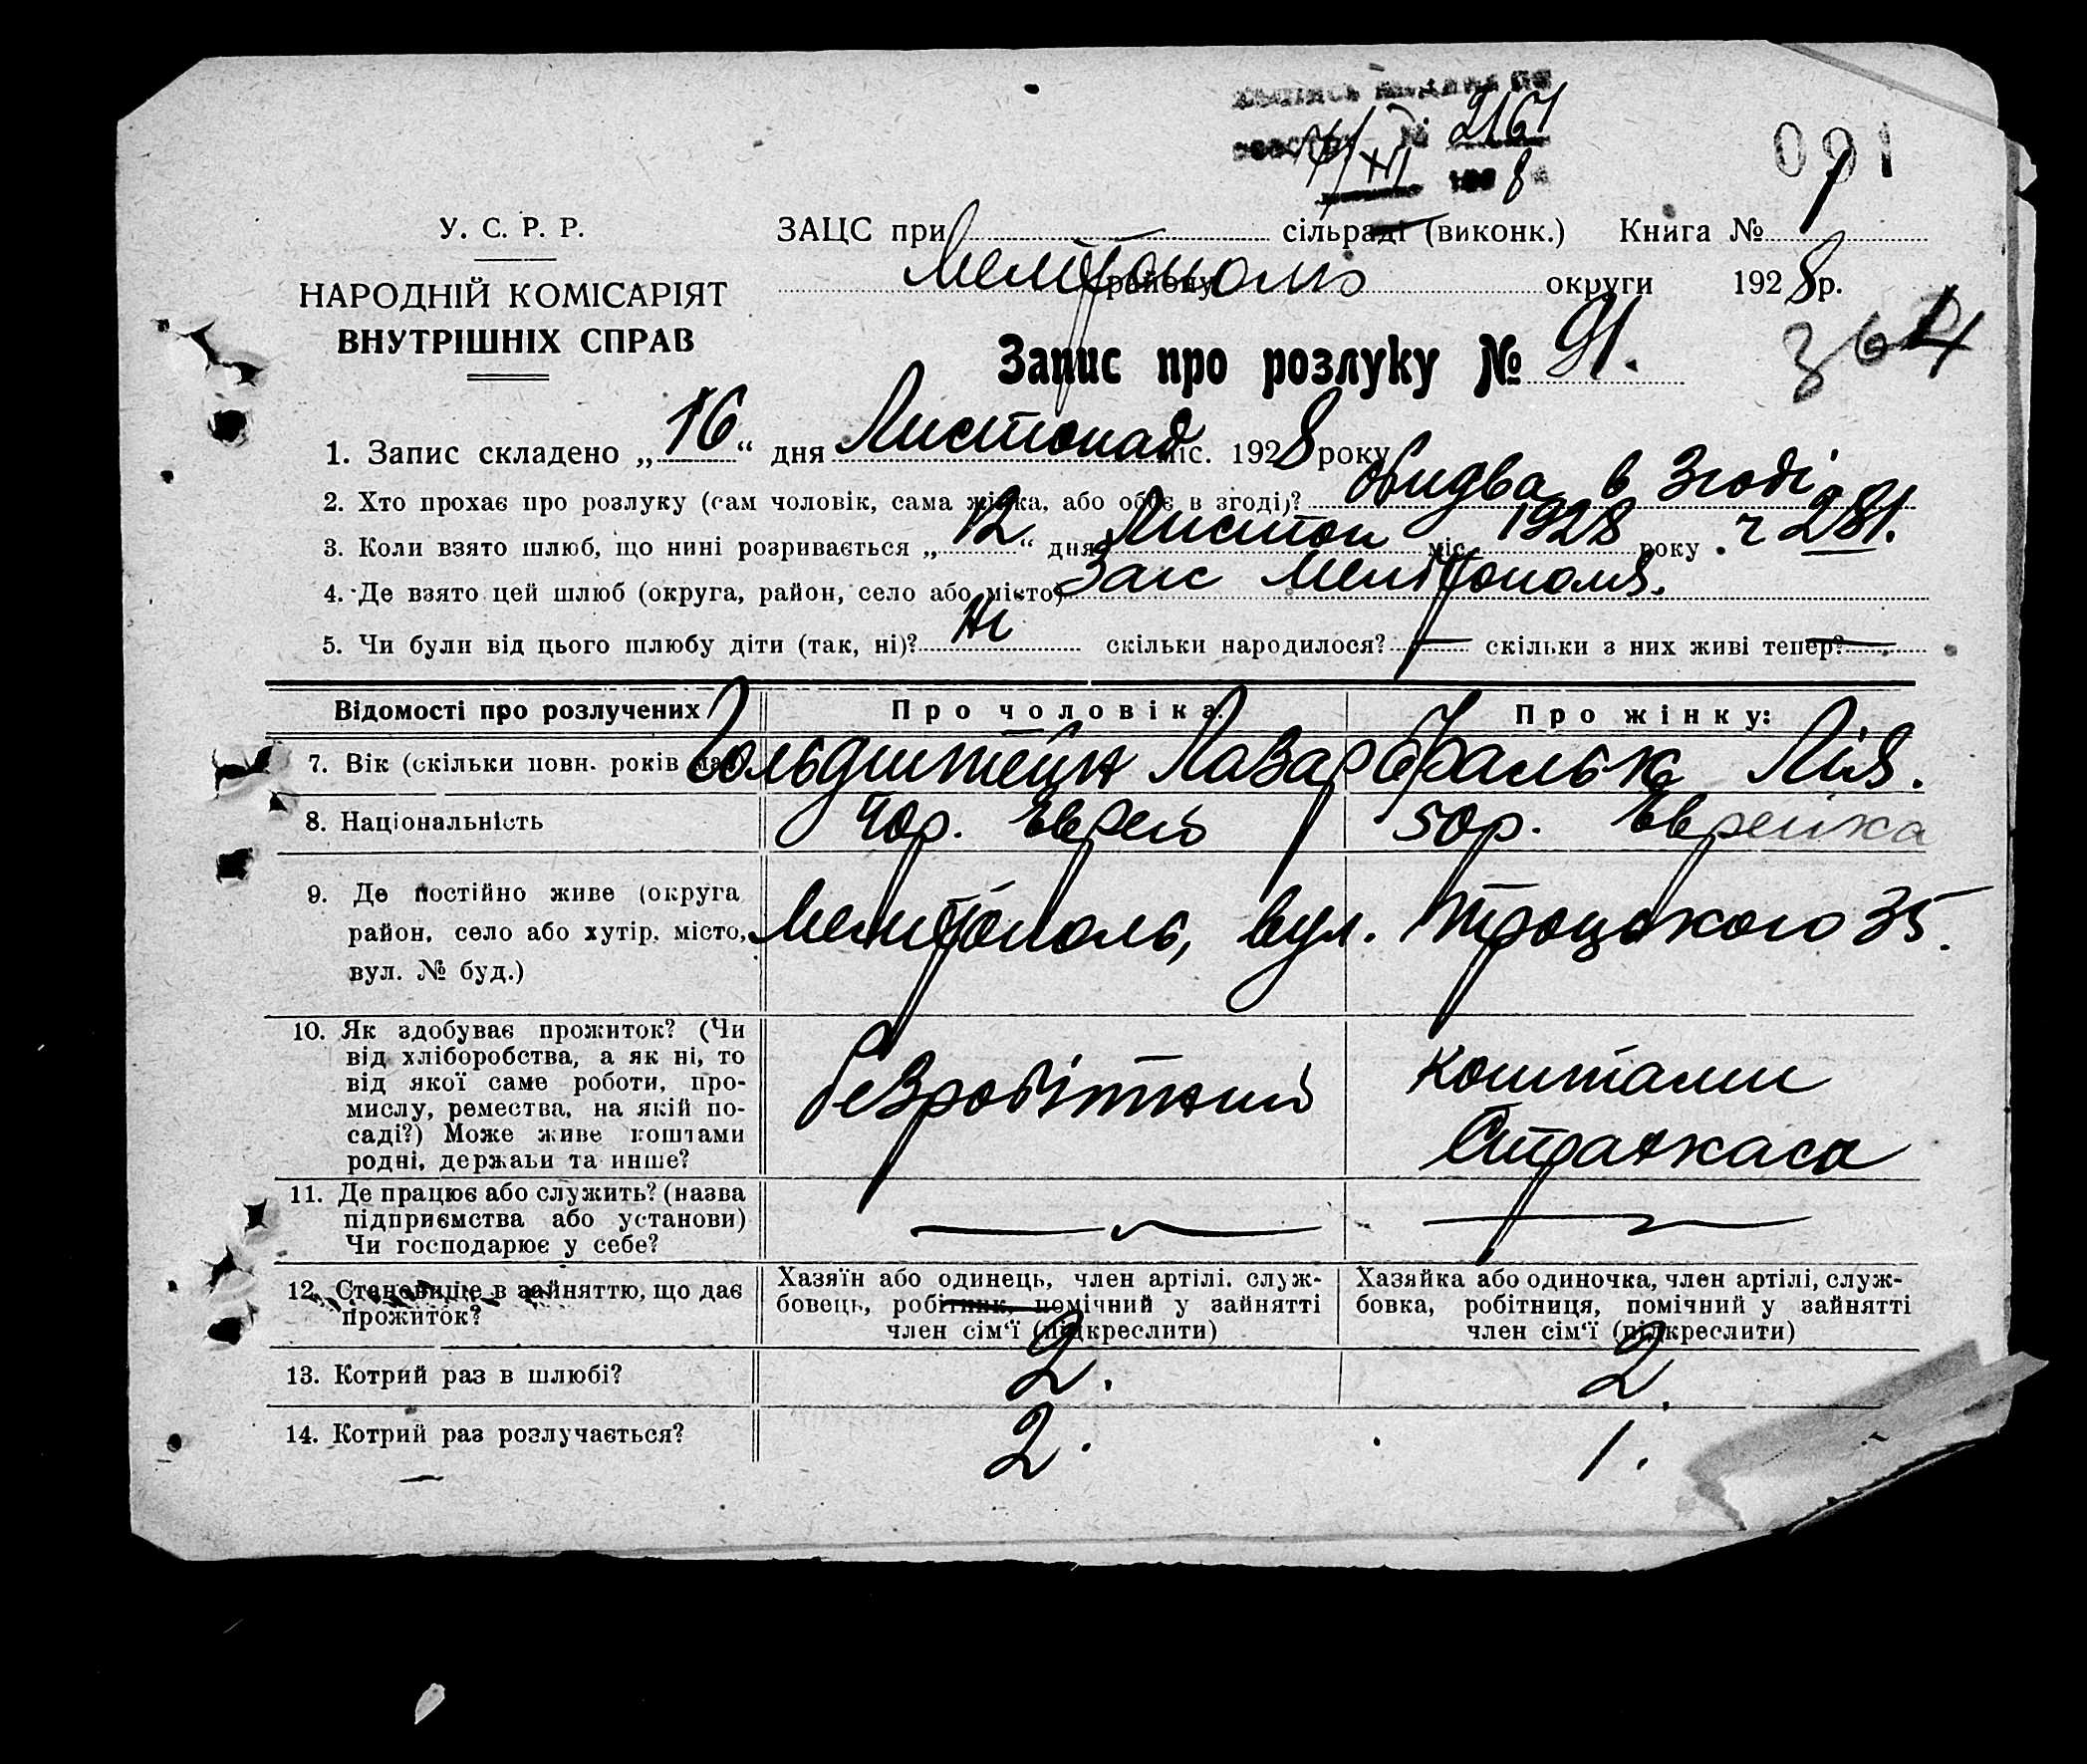 2161
XII 8
091
У. С. Р. Р.
ЗАЦС при сільраді (виконк.) Книга № 1
НАРОДНІЙ КОМІСАРІЯТ
ВНУТРІШНІХ СПРАВ
Мелітополь району округи 1928 р.
Запис про розлуку № 91. 364
1. Запис складено „16“ дня Листопад міс. 1928 року
2. Хто прохає про розлуку (сам чоловік, сама жінка, або обоє в згоді)? обидва в згоді
3. Коли взято шлюб, що нині розривається „12“ дня Листоп міс. 1928 року. ч 281.
4. Де взято цей шлюб (округа, район, село або місто) Загс Мелітополя.
5. Чи були від цього шлюбу діти (так, ні)? Ні скільки народилося? — скільки з них живі тепер? —
Відомості про розлучених Про чоловіка: Про жінку:
7. Вік (скільки повн. років має) Гольдштейн Лазар Фральк Лія.
8. Національність 40р. Еврей 50р. Еврейка
9. Де постійно живе (округа
район, село або хутір, місто,
вул. № буд.)
Мелітополь, вул. Троцького 35.
10. Як здобуває прожиток? (Чи
від хліборобства, а як ні, то
від якої саме роботи, про-
мислу, ремества, на якій по-
саді?) Може живе коштами
родні, держави та инше?
безробітний
коштами
Страхкаса
11. Де працює або служить? (назва
підприємства або установи)
Чи господарює у себе?
12. Становище в зайняттю, що дає
прожиток?
Хазяїн або одинець, член артілі, служ-
бовець, робітник, помічний у зайнятті
член сім'ї (підкреслити)
Хазяйка або одиночка, член артілі, служ-
бовка, робітниця, помічний у зайнятті
член сім'ї (підкреслити)
13. Котрий раз в шлюбі? 2. 2.
14. Котрий раз розлучається? 2. 1.